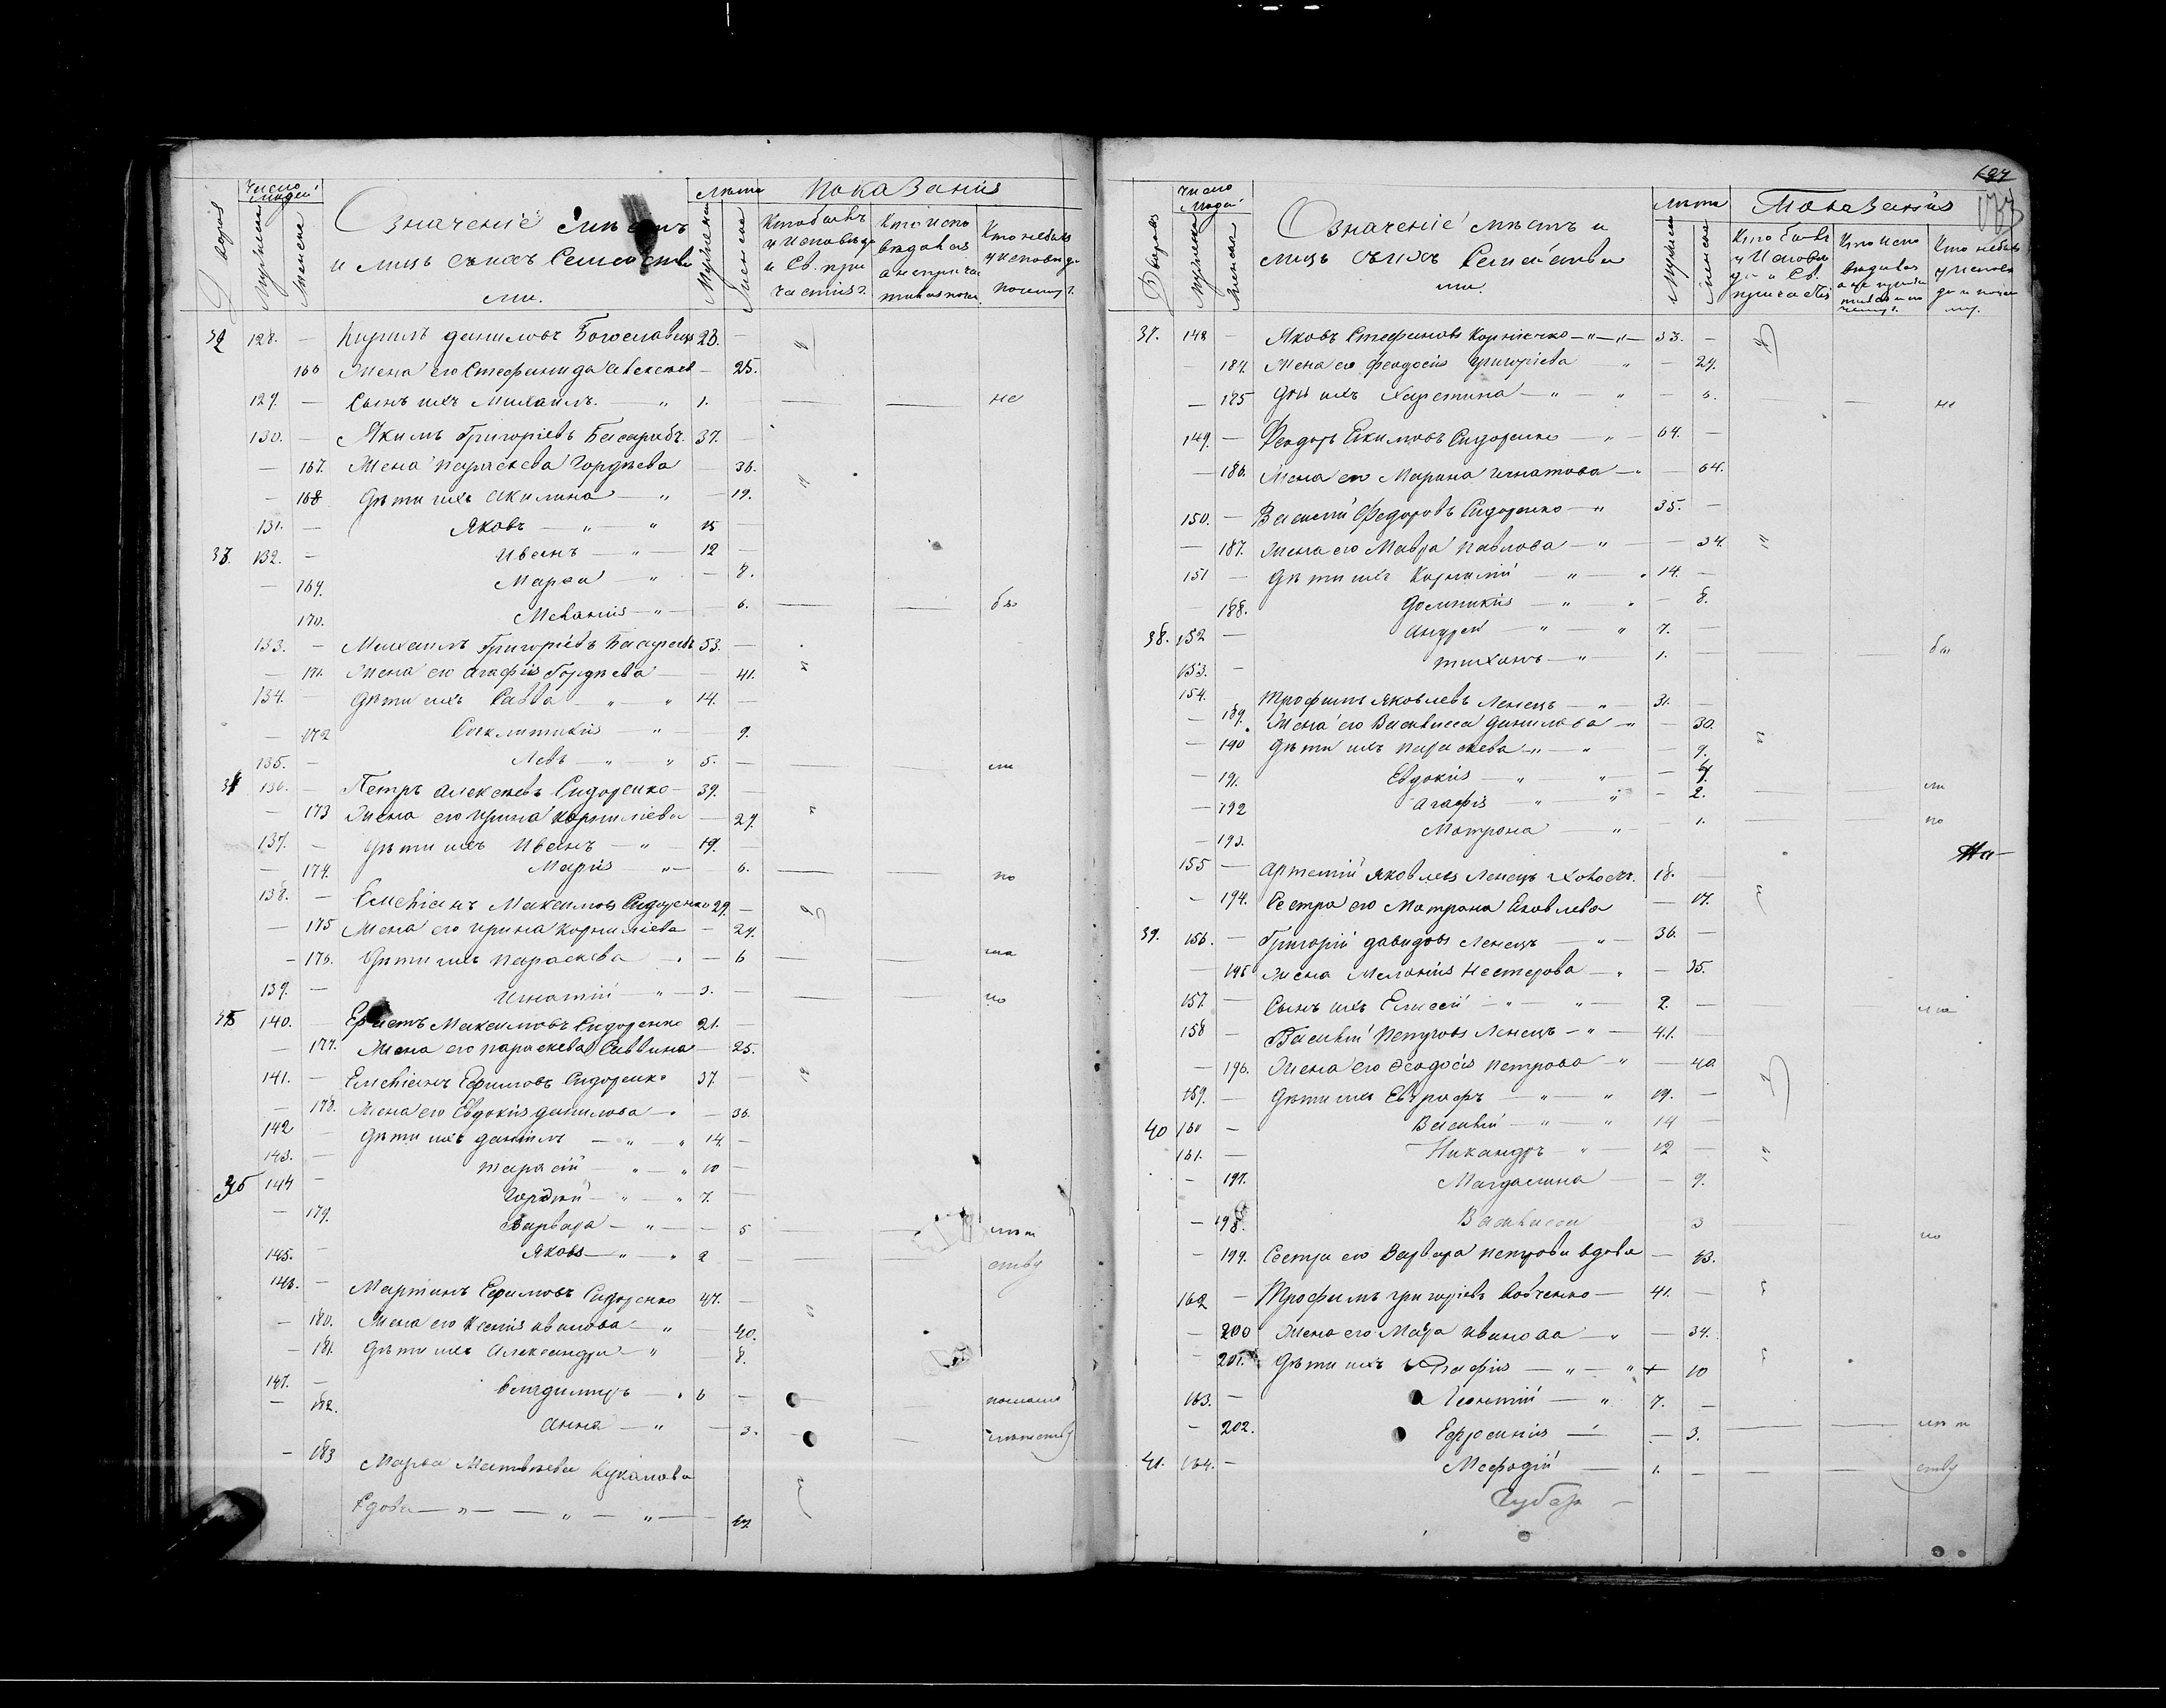 Число людей
Лета
Показанія
Дворовъ
Мужеска
Женска
Означеніе мѣстъ
и лицъ съ ихъ Семейства
ми.
Мужеска
Женска
Кто былъ у Исповѣди и Св. при частія?
Кто испо вѣдовал а не прича
Кто не былъ у исповѣди
32 128. — Кирилъ Даниловъ 23. —
166 Жена его Стефанида Алексѣев — 25.
129. — Сынъ ихъ Михаилъ. — " 1. — — не
130. — Якимъ Григоріевъ 37. —
— 167. Жена Параскева Гордѣева — 36.
— 168 Дѣти ихъ Акилина — " — 19.
131. — Яковъ — " — " 15
33. 132. — Иванъ — " — 12 —
— 169. Марѳа — " — 8.
170. Меланія — " — 6. — — бы
133. — Михаилъ Григоріевъ 53. —
— 171. Жена его Агафія Гордѣева — — 41.
134. — Дѣти ихъ Савва — " — " 14. —
— 172 Синклитикія — " — 9.
135. — Левъ — " — " 5. — — — ли
34 136. — Петръ Алексѣевъ Сидоренко — 39. —
— 173 Жена его Ирина Корниліева — 29.
137. — Дѣти ихъ Иванъ — " — 19. —
— 174. Марія " — 6. — — по
138. — Емеліанъ Максимовъ Сидоренко 29. —
— 175 Жена его Ирина Корниліева — 24.
— 176. Дѣти ихъ Параскева — " — 6 — — ма
139. — Игнатій — " — 3. — — — ло
35 140. — Максимовъ Сидоренко 21. —
— 177. Жена его Параскева Саввина — 25.
141. — Емеліанъ Ефимовъ Сидоренко 37. —
— 178. Жена его Евдокія Данилова — " — 36.
142 — Дѣти ихъ Даніилъ — " — " 14. —
143. — Тарасій — " — " 10 —
36 144 — Гордѣй — " — " 7. —
— 179. Варвара — " — — 5 — — лѣт
145. — Яковъ — " — " 2 — — — ству
146. — Мартинъ Ефимовъ Сидоренко 47. —
— 180. Жена его Ксенія Иванова — " — 40.
— 181. Дѣти ихъ Александра — " 8.
147. — Владиміръ — " 6 — — — помало
— 182. Анна — " — 3. — — лѣтству
— 183 Марѳа Матвѣева
Вдова — " — — " — " —

Число Людей
Лета
Показанія
Дворовъ
Мужеска
Женска
Означеніе мѣстъ и
лицъ съ ихъ Семейства
ми.
Мужеска
Женска
Кто былъ у Исповѣди и Св. причастія
Кто испо вѣдовал а не
Кто небылъ у исповѣди и почему.
37. 148 — Яковъ Стефановъ — " — " — 33. —
— 184. Жена его Феодосія Григоріева — " — 24.
— 185 Дѣти ихъ Харетина — " — " — 6. — не
149. — Феодоръ Екимовъ Сидоренко — " — 64. —
— 186. Жена его Марина Игнатова — " — 64.
150. — Василій Федоровъ Сидоренко — " 35. —
— 187. Жена его Мавра Павлова — " — — 34.
151 — Дѣти ихъ Корнилій — " — " 14. —
— 188. Домникія — " — " — 8.
38. 152 — Андрей — " — " 7. —
153. — Тихонъ — " — 1. — — — бы
154. Трофимъ Яковлевъ Ленецъ — " — 31. —
— 189. Жена его Васильисса Данилова — " — 30.
— 190 Дѣти ихъ Параскева — " — " — 9.
— 191. Евдокія — " — " — 4.
— 192 Агафія — " — " — 2. — — ли
— 193. Матрона — " — 1. — — по
155 — Артемій Яковлевъ Ленецъ 18. —
— 194. Сестра его Матрона Яковлева — 17.
39. 156. — Григорій Давидовъ Ленецъ — " — 36. —
— 195 Жена Меланія Нестерова — " — 35.
157. — Сынъ ихъ Елисей — " — " — 2. — ма
158 — Василій Петровъ Ленецъ — " — 41. —
— 196. Жена его Феодосія Петрова — " — 40
159. — Дѣти ихъ Евграфъ — " — " 19. —
40 160 — Василій — " — " 14 —
161. — Никандръ — " — 12 —
— 197. Магдалина — — 9.
— 198. Васильисса 3 — — ло
— 199. Сестра его Варвара Петрова вдова — 43.
162 — Трофимъ Григоріевъ — 41. —
— 200 Жена его Мавра Иванова — " — 34.
— 201. Дѣти ихъ Агафія — " — " + 10
163. — Леонтій — " 7. —
— 202. Ефросинія — — 3. — — лѣт
41. 164. — Меѳодій — 1. — — — ству